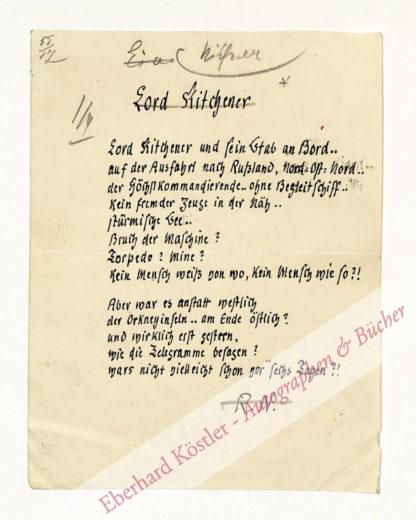 55
17
Kitchener
*
Lord Kitchener
Lord Kitchener und sein Stab an Bord..
auf der Ausfahrt nach Rußland, Nord-Ost-Nord..
der Höchstkommandierende.. ohne Begleitschiff..
kein fremder Zeuge in der Näh..
stürmische See..
Bruch der Maschine?
Torpedo? Mine?
Kein Mensch weiß von wo, kein Mensch wie so?!
Aber war es anstatt westlich
der Orkneyinseln.. am Ende östlich?
und wirklich erst gestern,
wie die Telegramme besagen?
wars nicht vielleicht schon vor sechs Tagen?!
R.N.
Eberhard Köstler - Autographen & Bücher